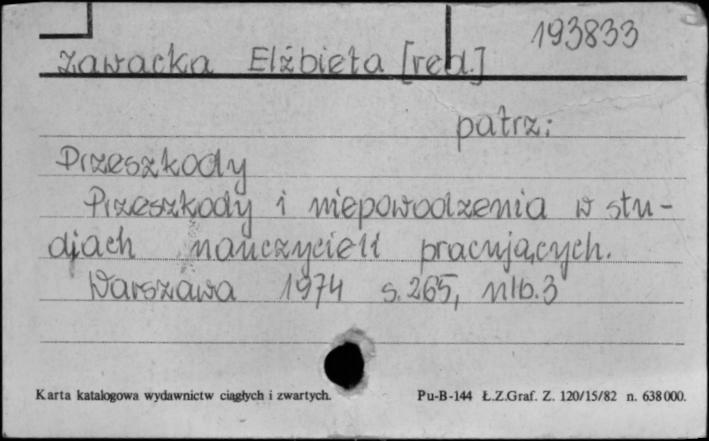 193833
Zawacka Elżbieta [red.]
patrz:
Przeszkody
Przeszkody i niepowodzenia w stu-
djach nauczycieli pracujących.
Warszawa 1974 s. 265, nlb. 3
Karta katalogowa wydawnictw ciągłych i zwartych.
Pu-B-144 Ł.Z.Graf. Z. 120/15/82 n. 638 000.